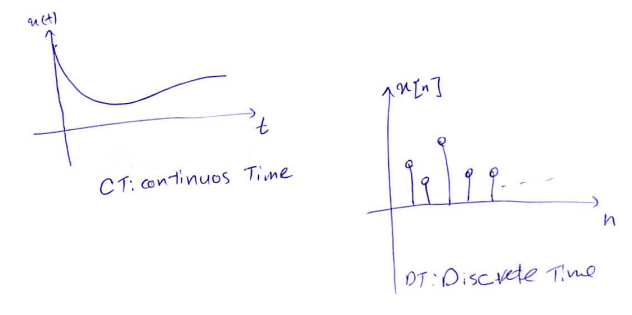 x(t)
t
CT: continuos Time
x[n]
n
DT: Discrete Time